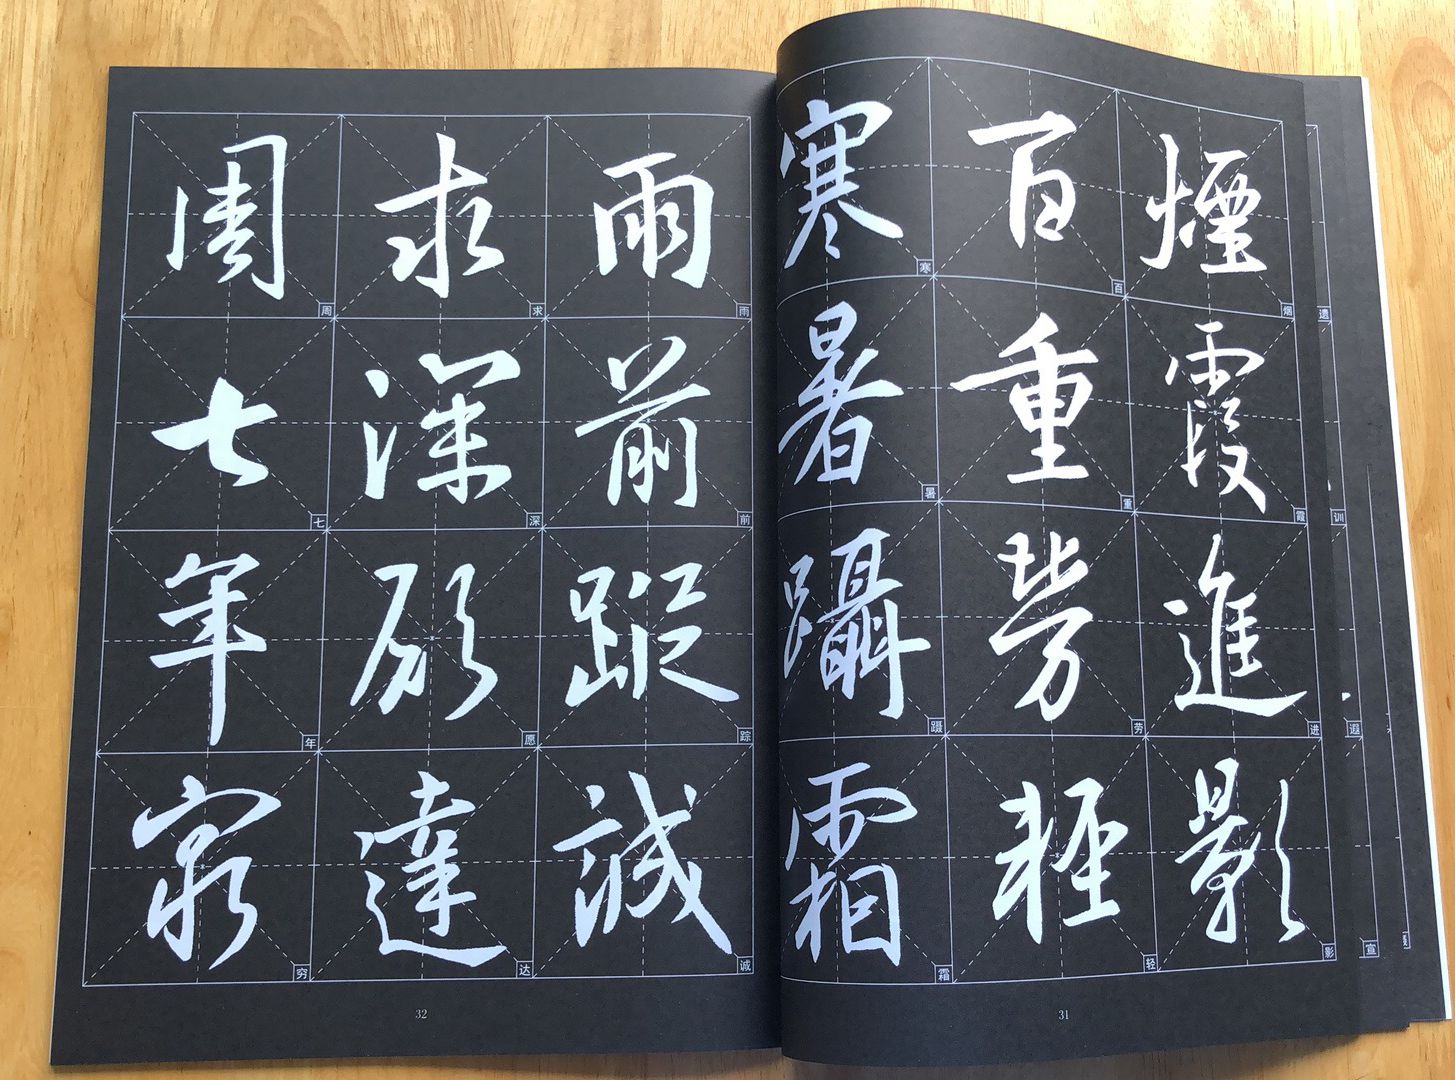 煙霞進影
烟霞进影
百重勞輕
百重劳轻
寒暑躡霜
寒暑蹑霜
31
雨前蹤誠
雨前踪诚
求深願達
求深愿达
周七年窮
周七年穷
32
遗训遐宣